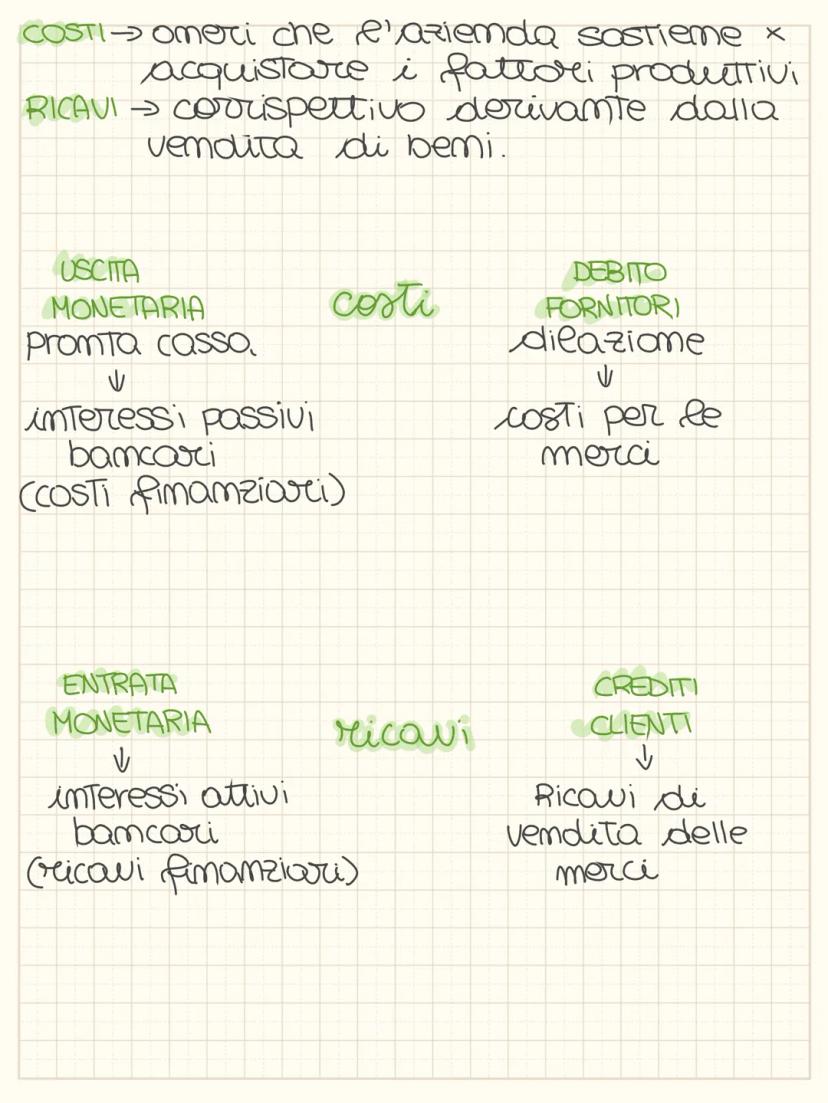 COSTI → oneri che l'azienda sostiene x
acquistare i fattori produttivi
RICAVI → corrispettivo derivante dalla
vendita di beni.
USCITA
MONETARIA
pronta cassa
↓
interessi passivi
bancari
(costi finanziari)
costi
DEBITO
FORNITORI
dilazione
↓
costi per le
merci
ENTRATA
MONETARIA
↓
interessi attivi
bancari
(ricavi finanziari)
ricavi
CREDITI
CLIENTI
↓
Ricavi di
vendita delle
merci